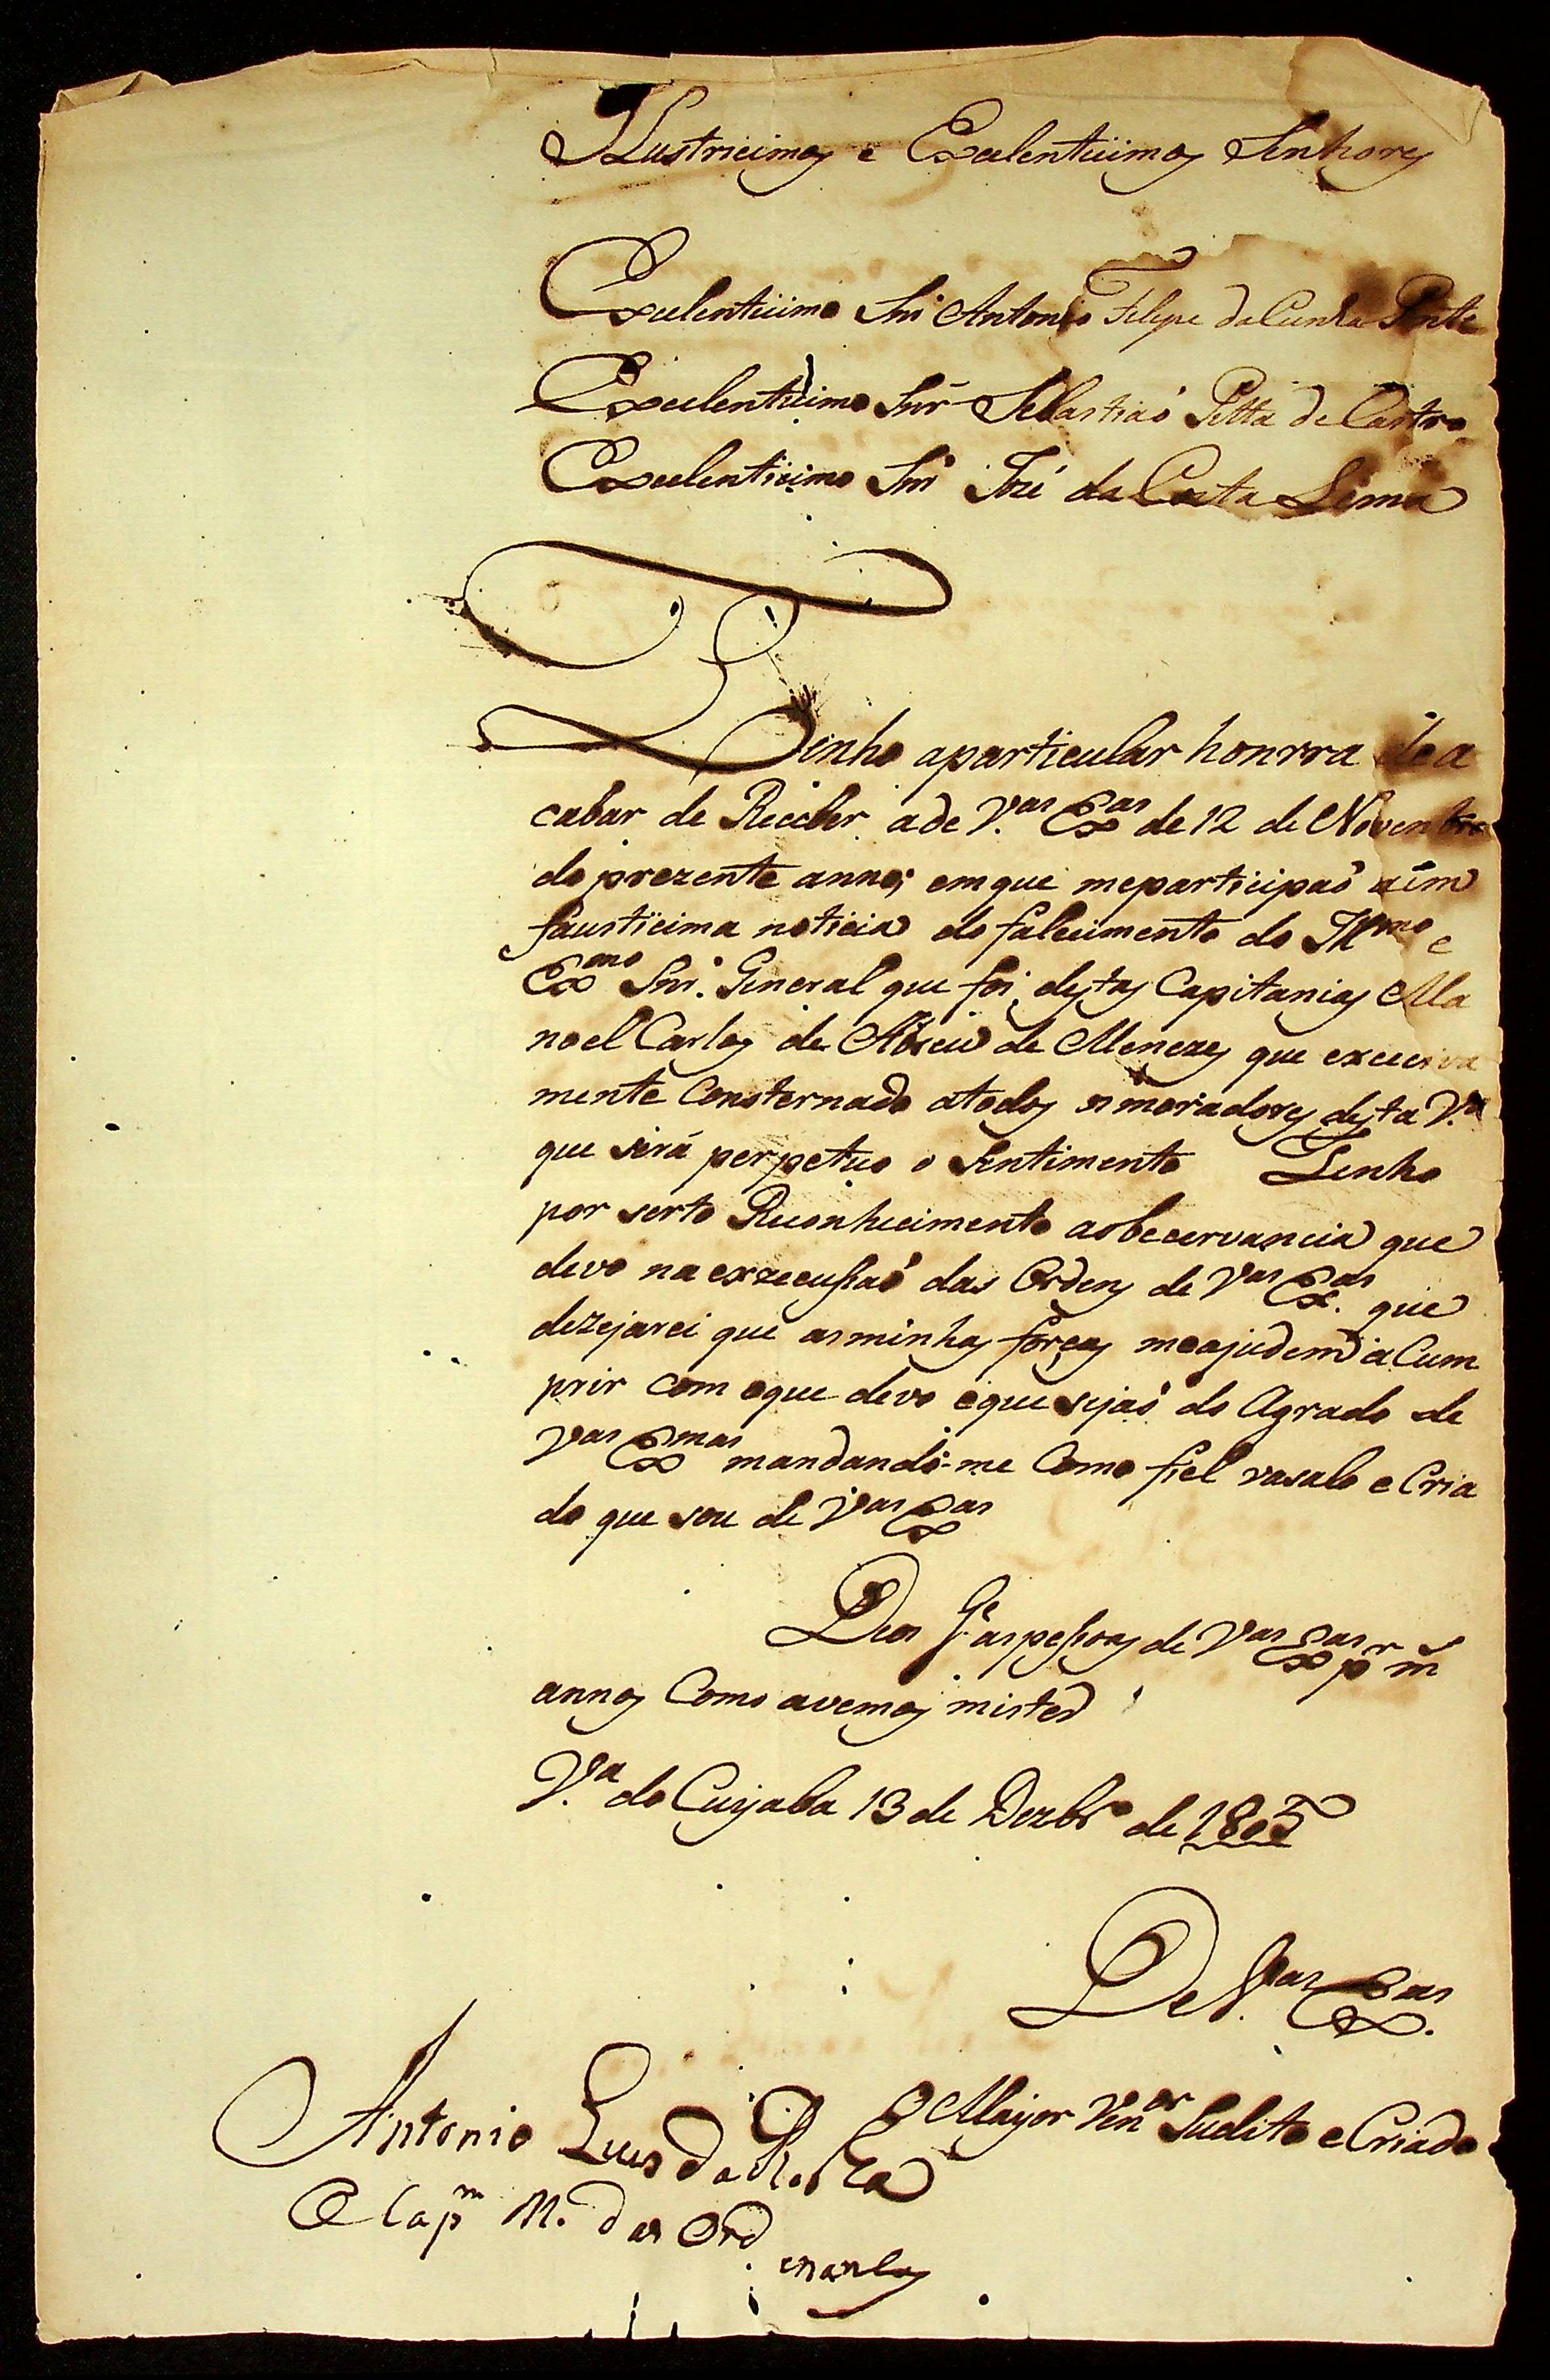 Illustricimos e Excelenticimos Senhores
Excelenticimo Snr Antonio Felipe da Cunha Ponte
Excelenticimo Snr Sebastiaó Pitta de Castro
Excelenticimo Snr Jozé da Costa Lima
Tenho aparticular honrra de a
cabar de Receber ade V.as Ex.as de 12 de Novembro
do prezente anno; emque meparticipaó aim
fausticima noticia do falecimento do Illmo e
Exmo Snr. General que foi destas Capitanias Ma
noel Carlos de Abreu de Menezes que exceciva
mente Consternado atodos os moradores desta V.a
que será perpetuo o Sentimento Tenho
por serto Reconhecimento aobecervancia que
devo na exzecussaó das Ordens de Vas Exas. que
dezejarei que asminhas forças meajudem a Cum
prir com oque devo eque sejaó do Agrado de
Vas Exmas mandando-me Como fiel vasalo e Cria
do que sou de Vas Exas
Deos Ge aspessoas de Vas Exas pr ms
annos Como avemos mister
V.a do Cuyaba 13 de Dezbro de 1805
De V.as Exas.
O Mayor Venor Sudito e Criado
Antonio Luis da Rocha
O Capm M. das Ord
enanças